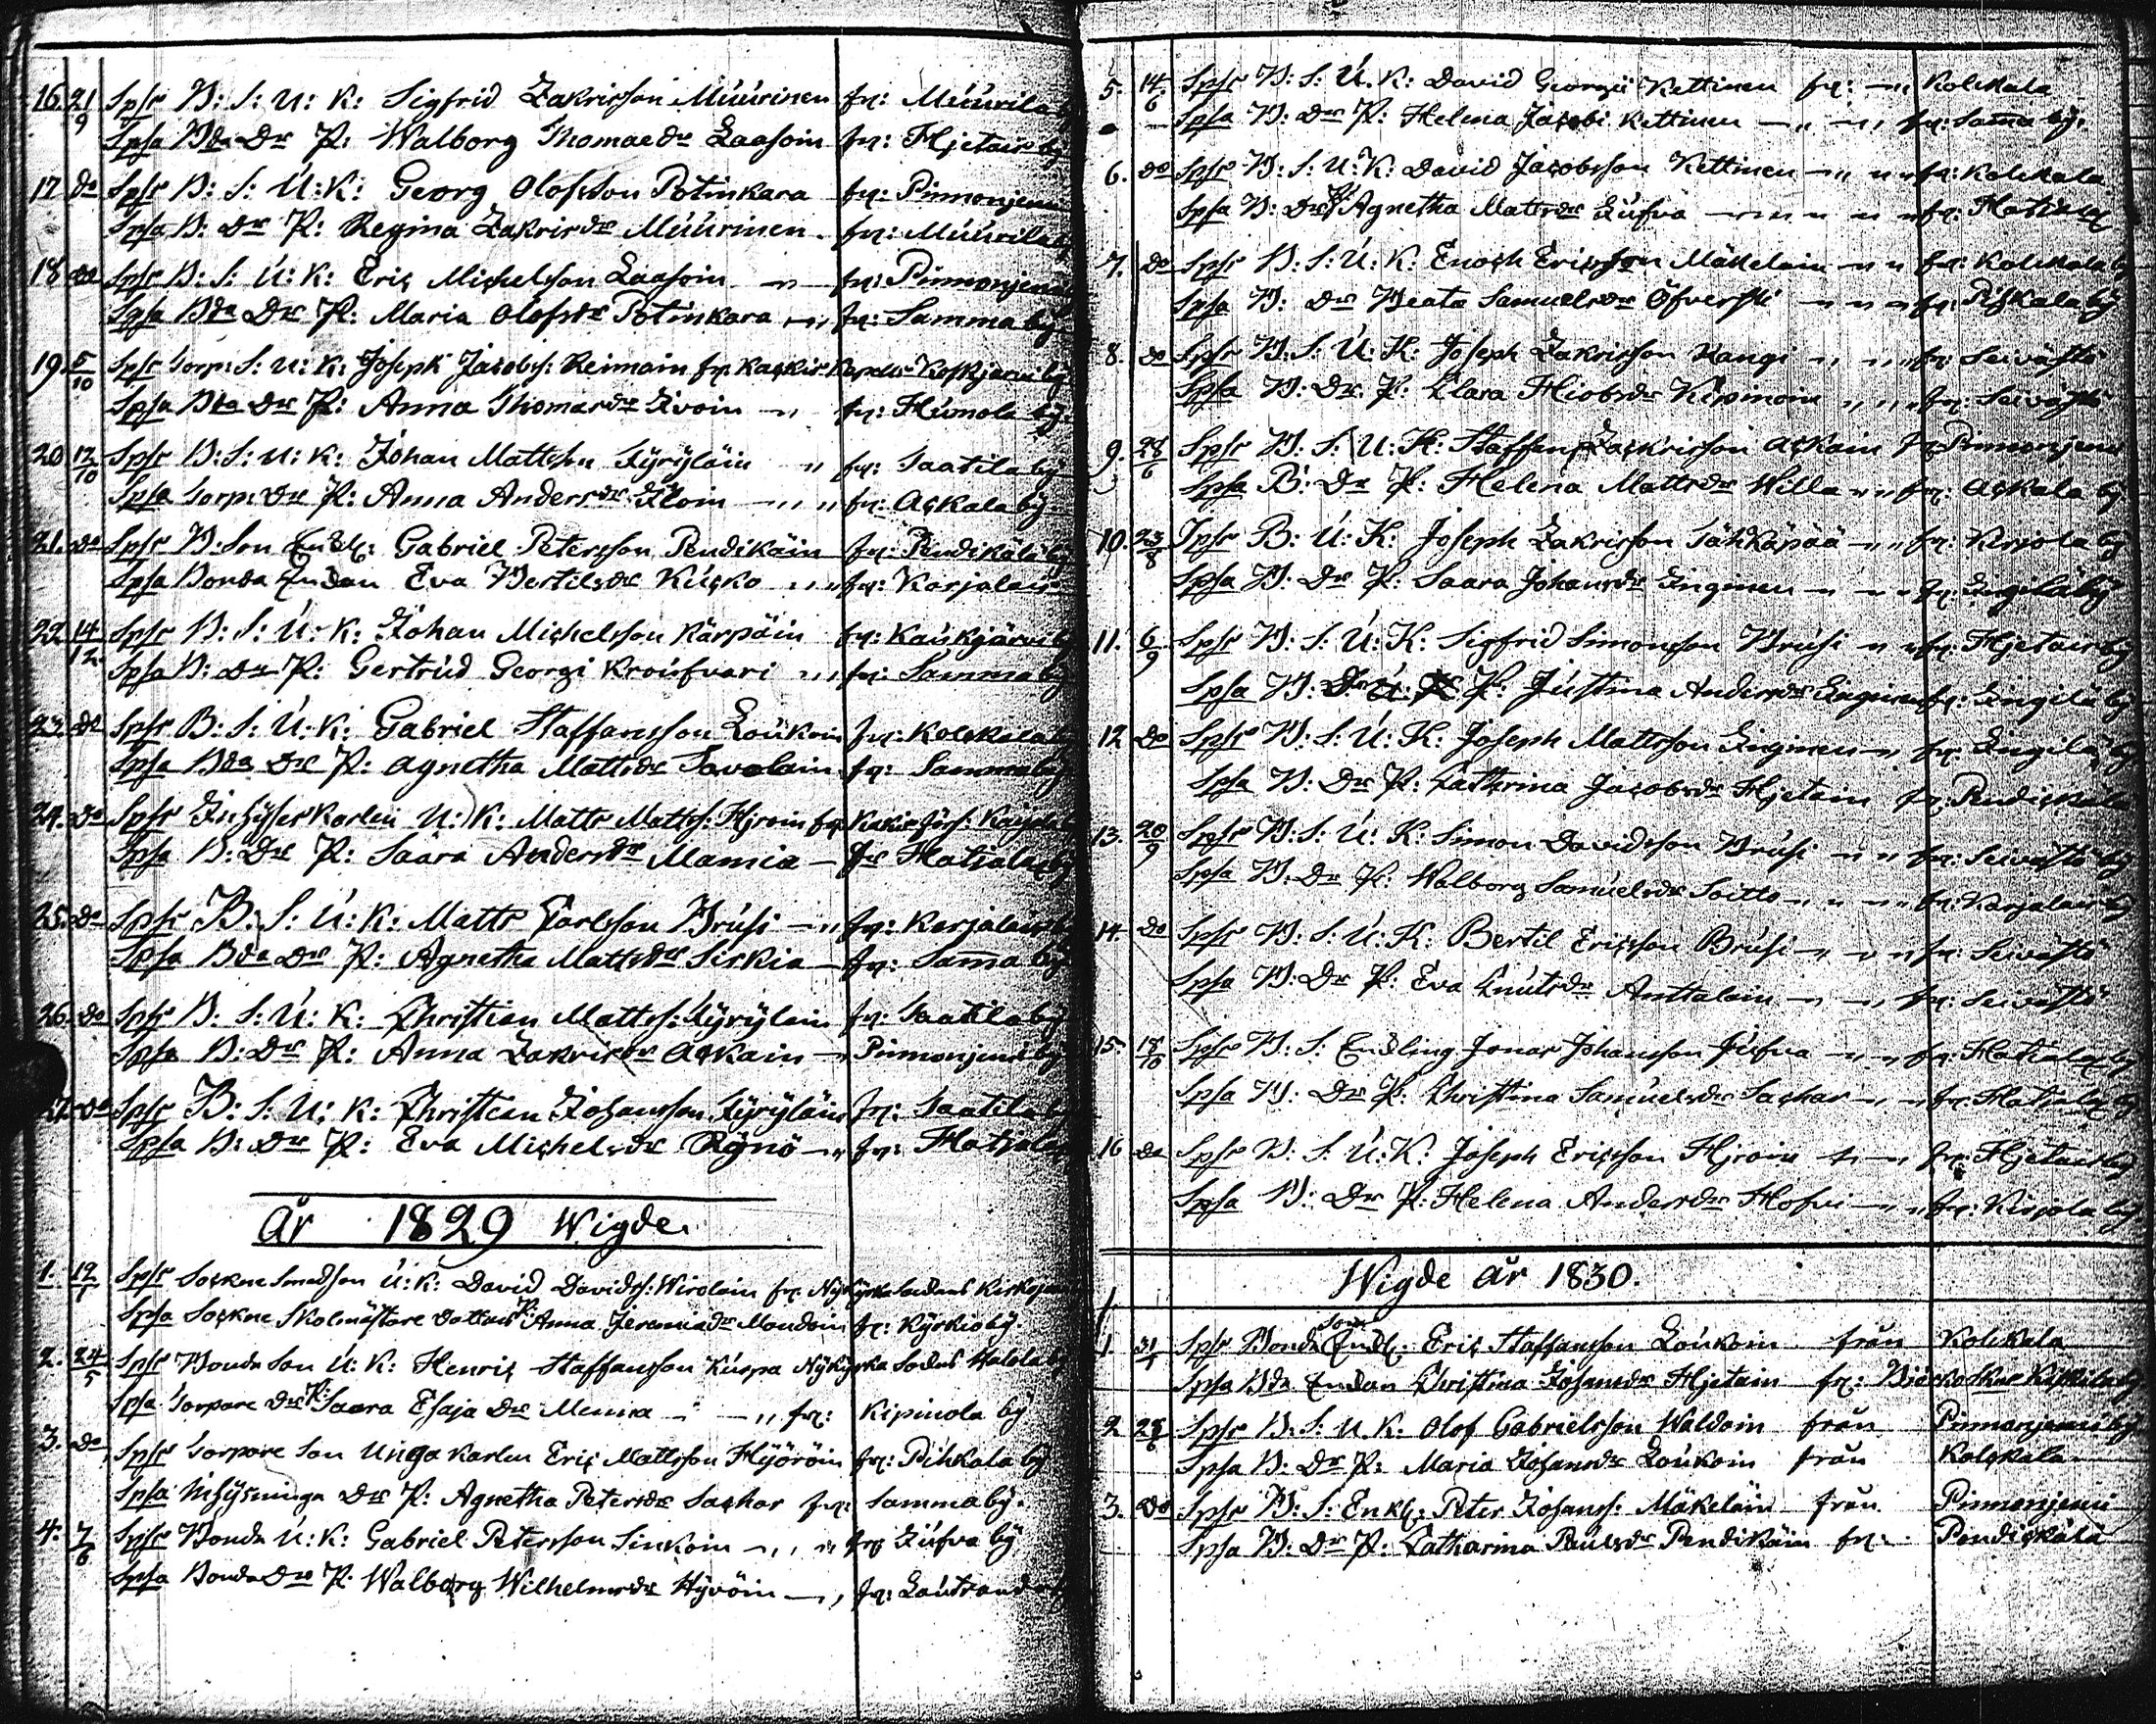 16. 21/9 Spsr B: S: U: K: Sigfrid Zakrisson Muurinen fr: Muurila
Spsa Bde Dr P: Walborg Thomaedr Laasoin fr: Hjetais by
17 do Spsr B: S: U: K: Georg Olofsson Potinkara fr: Pinnonjemi
Spsa B: Dr P: Regina Zakrisdr Muurinen fr: Muurila
18 do Spsr B: S: U: K: Eric Michelsson Laasoin fr: Pinnonjemi
Spsa Bde Dr P: Maria Olofsdr Potinkara fr: Samma by
19. 5/10 Spsr Torp: S: U: K: Joseph Jacobs: Reimain fr: Kaskis Kapells Koskjerwi by
Spsa Bde Dr P: Anna Thomasdr Ivoin fr: Humola by
20 12/10 Spsr B: S: U: K: Johan Mattsson Kyryläin fr: Saatila by
Spsa Torp: Dr P: Anna Andersdr Iloin fr: Ackala by
21. do Spsr B: Son Enkl: Gabriel Petersson Pendikäin fr: Pendikälä by
Spsa Bonde Enkan Eva Bertilsdr Kucko fr: Karjalais
22 14/12 Spsr B: S: U: K: Johan Michelsson Kärpäin fr: Kaukjärvi
Spsa B: Dr P: Gertrud Georgi Kroufvari fr: Samma by
23. do Spsr B: S: U: K: Gabriel Staffansson Loukoin fr: Kolckala
Spsa Bde Dr P: Agnetha Mattsdr Savolain fr: Samma by
24. do Spsr Inhyses Karlen U: K: Matts Matts: Hjroin fr: Kivin
Spsa B: Dr P: Saara Andersdr Mamia fr Hatjala by
25. do Spsr B: S: U: K: Matts Carlsson Brusi fr: Karjalais
Spsa Bde Dr P: Agnetha Mattsdr Sirkia fr: Samma by
26. do Spsr B: S: U: K: Christian Matts: Kyrylein fr: Saatila by
Spsa B: Dr P: Anna Zakrisdr Ackain Pinnonjemi by
27. do Spsr B: S: U: K: Christian Johansson Kyryläin fr: Saatila
Spsa B: Dr P: Eva Michelsdr Rynö fr: Hatjala
År 1829 Wigde.
1. 19/1 Spsr Sockne Smedson U: K: David Davids: Wirolain fr: Nykyrka Sockens
Spsa Sockne Skolmästare dotter P: Anna Jeremiadr Mondoin fr: Kyrkio by.
2. 24/5 Spsr Bonde Son U: K: Henric Staffansson Kuspa Nykyrka Sockens Halola
Spsa Torpare Dr P: Saara Esaja Dr Menna fr: Kipinola by
3. do Spsr Torpare Son Unga Karlen Eric Mattsson Hyöröin fr: Pihkala by
Spsa Inhysninge Dr P: Agnetha Petersdr Sachar fr: Samma by.
4. 7/6 Spsr Bonde U: K: Gabriel Petersson Sinkoin fr: Jufva by
Spsa Bonde Dr P. Walborg Wilhelmsdr Hyvöin fr: Lautrand
5. 14/6 Spsr B: S: U. K: David Georgii Kettinen fr: Kolckala
Spsa B: Dr P: Helena Jacobi Kettinen fr: Samma by.
6. do Spsr B: S: U: K: David Jacobsson Kettinen fr: Kolckala
Spsa B: Dr P: Agnetha Mattsdr Jufva fr: Hatjala
7. do Spsr B: S: U: K: Enoch Ericsson Mäkelain fr: Kolckala
Spsa B: Dr Beata Samuelsdr Öfverski fr: Pihkala by
8. do Spsr B: S: U: K: Joseph Zakrisson Kangi fr: Seivästö
Spsa B: Dr. P: Clara Hiobsdr Kipinoin Seivästö
9. 28/6 Spsr B: S: U: K: Staffan Zackrisson Ackain fr Pinnonjemi
Spsa B: Dr P: Helena Mattsdr Willa fr: Ackala by
10. 23/8 Spsr B: U: K: Joseph Zakrisson Tähkäpää fr: Kirjola by
Spsa B: Dr P: Saara Johansdr Inginen fr: Ingilä by
11. 6/9 Spsr B: S: U: K: Sigfrid Simonsson Brusi fr: Hjetais by
Spsa B: Dr P: Justina Andersdr Inginen fr: Ingilä by
12 do Spsr B: S: U: K: Joseph Mattsson Inginen fr: Ingilä by
Spsa B: Dr P: Catharina Jacobsdr Hjetain fr: Pendickala
13. 20/9 Spsr B: S: U: K: Simon Davidsson Brusi fr: Seivästö by
Spsa B: Dr P: Walborg Samuelsdr Soitto fr: Karjalais by
14. do Spsr B: S: U: K: Bertil Ericsson Brusi fr: Seivästö
Spsa B: Dr P: Eva Knutsdr Anttalain fr: Seivästö
15. 18/10 Spsr B: S: Enkling Jonas Johansson Jufva fr: Hatjala by
Spsa B: Dr P: Christina Samuelsdr Sachar fr: Hatjala by
16 do Spsr B: S: U: K: Joseph Ericsson Hjroin fr: Hjetais by
Spsa B: Dr P: Helena Andersdr Hofvi fr: Kirjola by
Wigde år 1830.
1. 31/1 Spsr Bonde Son Enkl: Eric Staffansson Loukoin från Kolckala
Spsa Bde Enkan Christina Johansdr Hjetain fr: Biörkö
2 28/6 Spsr B: S: U. K: Olof Gabrielsson Waldoin från Pinnonjemi by
Spsa B: Dr P: Maria Johansdr Loukoin från Kolckala
3. do Spsr B: S: Enkl: Peter Johans: Mäkeläin från Pinnonjemi
Spsa B: Dr P: Catharina Paulsdr Pendikäin fr: Pendickälä